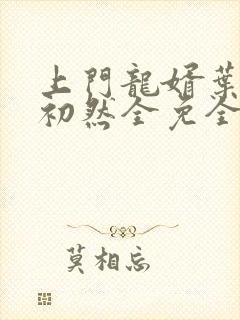 上門龍婿葉
初然全免全
莫相忘